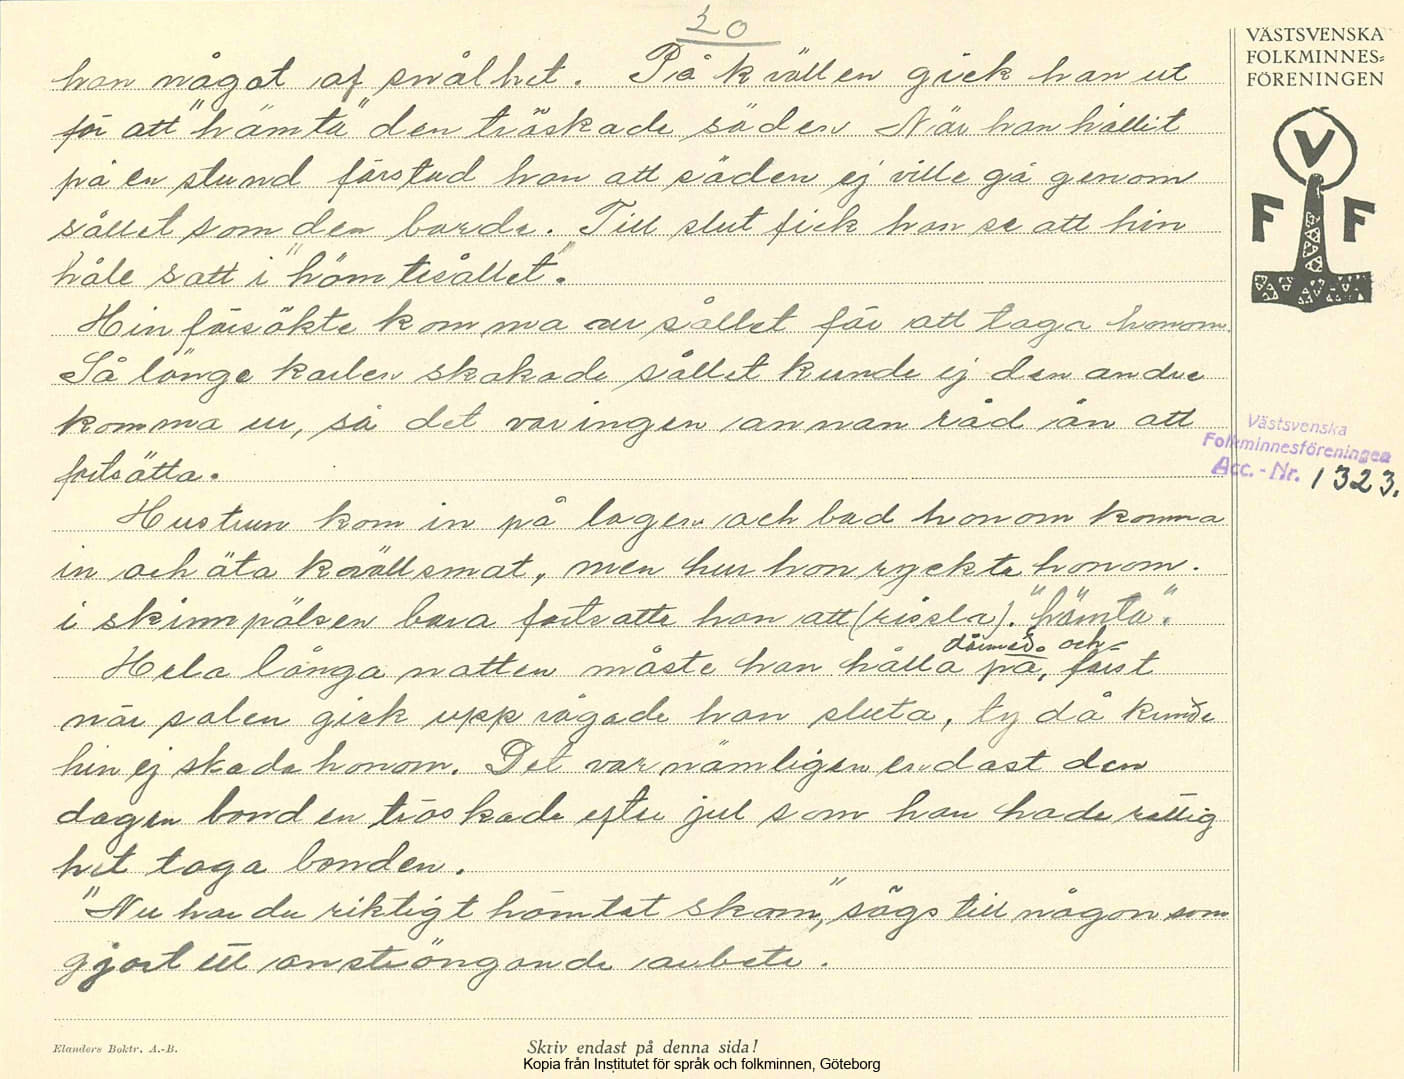 20
han något af snålhet. På kvällen gick han ut
för att "hämta" den tröskade säden. När han hållit
på en stund förstod han att säden ej ville gå genom
sållet som den borde. Till slut fick han se att hin
håle satt i "hämtesållet".
Hin försökte komma ur sållet för att taga honom.
Så länge karlen skakade sållet kunde ej den andre
komma ur, så det var ingen annan råd än att
fortsätta.
Hustrun kom in på logen och bad honom komma
in och äta kvällsmat, men hur hon ryckte honom
i skinnpälsen bara fortsatte han att (rissla). "hämta".
därmed. och
Hela långa natten måste han hålla på, först
när solen gick upp vågade han sluta, ty då kunde
hin ej skada honom. Det var nämligen endast den
dagen bonden tröskade efter jul som han hade rättig
het taga bonden.
"Nu har du riktigt hämtat skom", sägs till någon som
gjort ett ansträngande arbete.
VÄSTSVENSKA
FOLKMINNES-
FÖRENINGEN
V
F F
Västsvenska
Folkminnesföreningen
Acc. - Nr. 1323.
Elanders Boktr. A.-B.
Skriv endast på denna sida!
Kopia från Institutet för språk och folkminnen, Göteborg